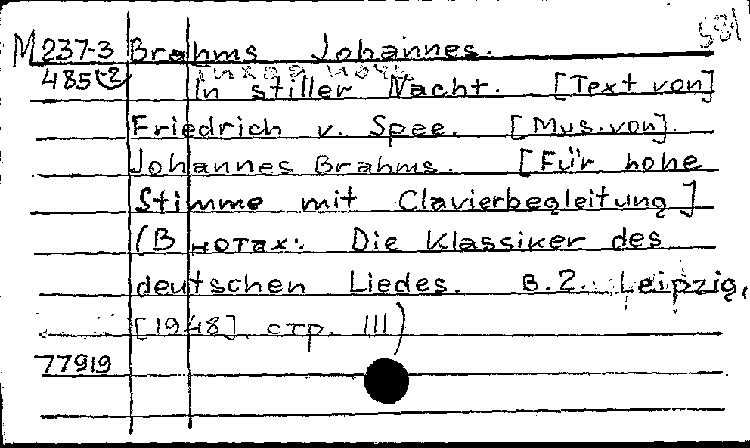 581
M 237-3 Brahms Johannes.
485(2 Тихая ночь
In stiller Nacht. [Text von]
Friedrich v. Spee. [Mus. von].
Johannes Brahms. [Für hohe
Stimme mit Clavierbegleitung]
(В нотах: Die Klassiker des
deutschen Liedes. B.2. Leipzig,
[1948] стр. 111)
77919